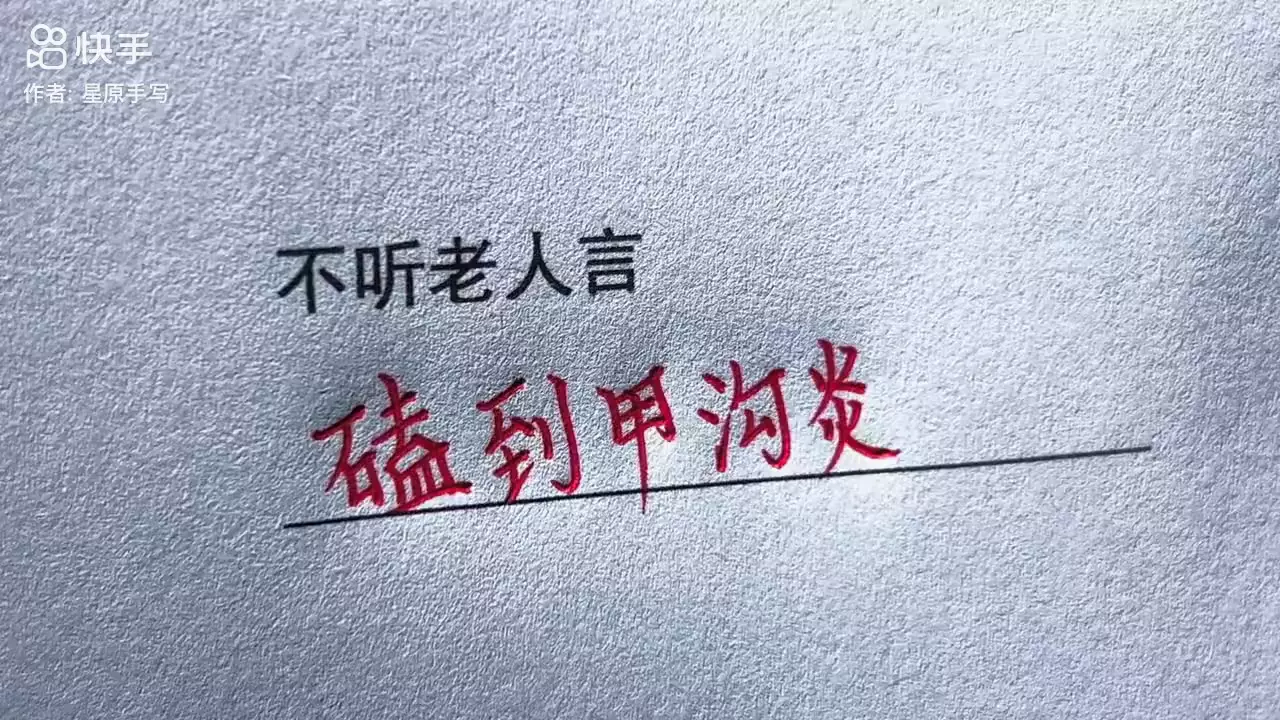 快手
作者: 星原手写
不听老人言
磕到甲沟炎